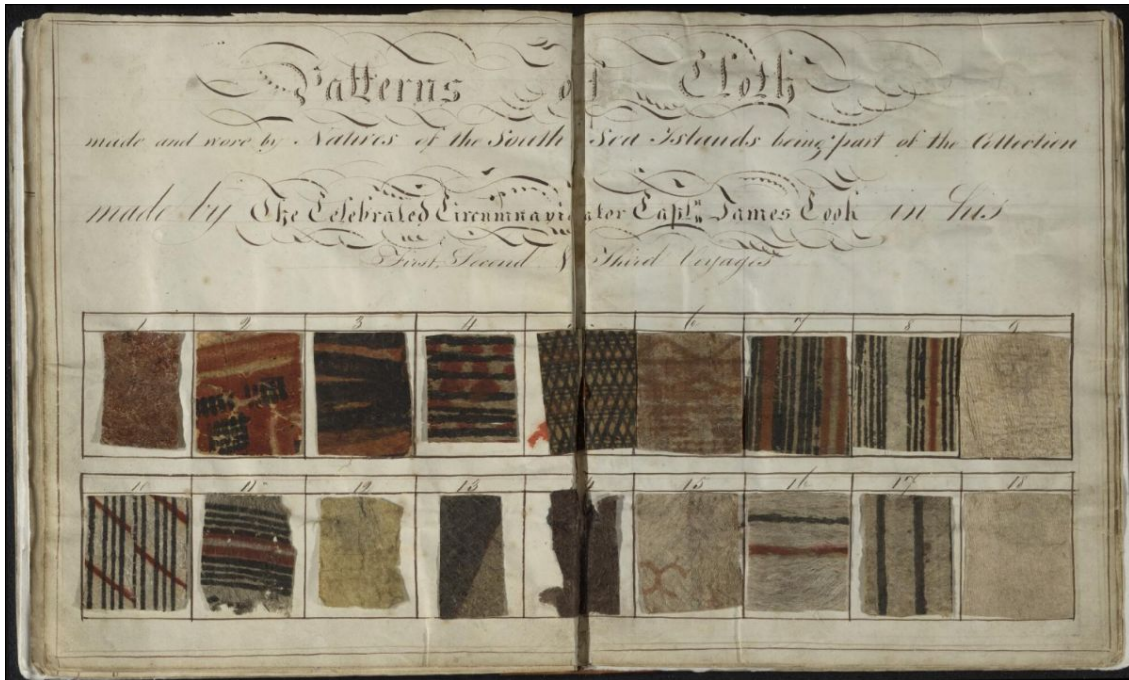 Patterns of Cloth
made and wore by Natives of the South Sea Islands being part of the Collection
made by The Celebrated Circumnavigator Captn James Cook in his
First, Second & Third Voyages
1 2 3 4 5 6 7 8 9
10 11 12 13 14 15 16 17 18